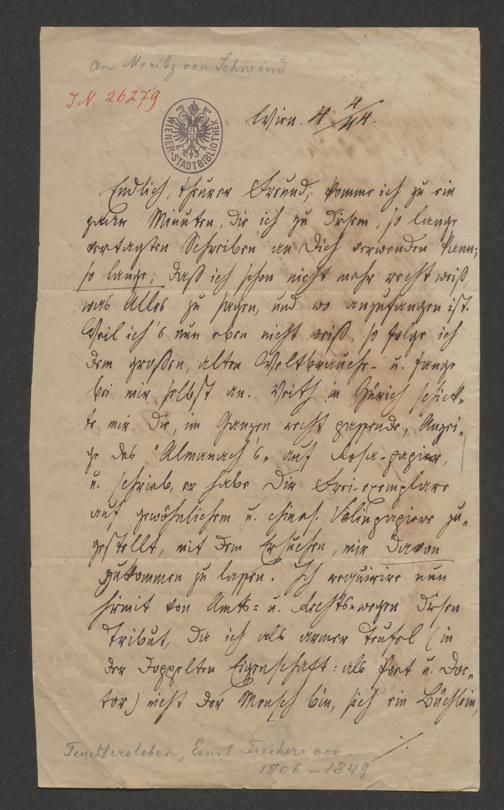 An Moritz von Schwind
I.N. 26279
WIENER-STADTBIBLIOTHEK
Wien. 4 4/44.
Endlich, theurer Freund, komme ich zu ein
paar Minuten, die ich zu diesem, so lange
vertagten Schreiben an Dich verwenden kann;
so lange, daß ich schon nicht mehr recht weiß
was Alles zu sagen, und wo anzufangen ist.
Weil ich's nun eben nicht weiß, so folge ich
dem großen, alten Weltbrauche - u. fange
bei mir selbst an. Veith in Zürich schick-
te mir die, im Ganzen recht passende, Anzei-
ge des "Almanach's" auf Rosa-papier,
u. schrieb, er habe Dir Frei-exemplare
auf gewöhnlichem u. chines. Velinpapiere zu-
gestellt, mit dem Ersuchen, mir davon
zukommen zu lassen. Ich requirire nun
hiemit von Amts- u. Rechts-wegen diesen
Tribut, da ich als armer Teufel (in
der doppelten Eigenschaft: als Poet u. Doc-
tor) nicht der Mensch bin, sich ein Büchlein,
Feuchtersleben, Ernst Freiherr von
1806-1849